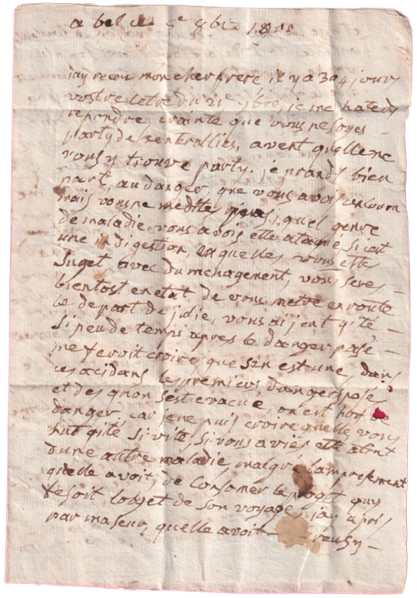 a bel 8bre 1800
jay recu mon cher frere il y a 3 a 4 jours
vostre letre du 21e 7bre, je me hate dy
repondre crainte que vous ne soyes
party de avent quelle ne
vous y trouve party. je prands bien
part, au danger que vous aves
mais vous ne medite quel genre
de maladie vous a vois este ataque si cait
une indigestion, laquelle vous este
suget avec du menagement, vous seres
bientost en etat de vous metre en route
le depart de julie, vous aijent quité
si peu de temps apres le danger pasé
me feroit croire que sen est une dans
ces acidans les premiers dangers pasé
et des quon sest evacué, on est hor de
danger, car je ne puis croire quelle vous
hut quité si vite si vous aviés este atint
dune autre maladie malgre lampresement
quelle avoit de consomer le projit quy
fesoit lobget de son voyage, jay apris
par ma seur, quelle avoit reusy